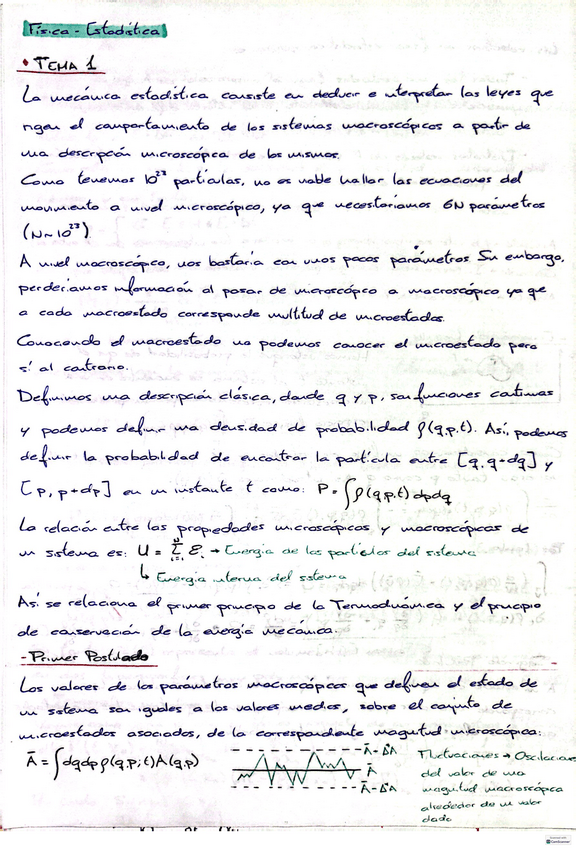 Física - Estadística
• TEMA 1
La mecánica estadística consiste en deducir e interpretar las leyes que
rigen el comportamiento de los sistemas macroscópicos a partir de
una descripción microscópica de los mismos.
Como tenemos 10²³ partículas, no es viable hallar las ecuaciones del
movimiento a nivel microscópico, ya que necesitaríamos 6N parámetros
(N~10²³)
A nivel macroscópico, nos bastaría con unos pocos parámetros. Sin embargo,
perderíamos información al pasar de microscópico a macroscópico ya que
a cada macroestado corresponde multitud de microestados.
Conociendo el macroestado no podemos conocer el microestado pero
sí al contrario.
Definimos una descripción clásica, donde q y p, son funciones continuas
y podemos definir una densidad de probabilidad ρ(q,p,t). Así, podemos
definir la probabilidad de encontrar la partícula entre [q, q+dq] y
[p, p+dp] en un instante t como: P = ∫ρ(q,p,t) dpdq
La relación entre las propiedades microscópicas y macroscópicas de
un sistema es: U = Σ εᵢ → Energía de las partículas del sistema
↳ Energía interna del sistema
Así se relaciona el primer principio de la Termodinámica y el principio
de conservación de la energía mecánica.
- Primer Postulado
Los valores de los parámetros macroscópicos que definen el estado de
un sistema son iguales a los valores medios, sobre el conjunto de
microestados asociados, de la correspondiente magnitud microscópica:
Ā = ∫dqdp ρ(q,p;t)A(q,p)
Ā-ΔA
Ā
Ā-ΔA
Fluctuaciones → Oscilaciones
del valor de una
magnitud macroscópica
alrededor de un valor
dado
CamScanner